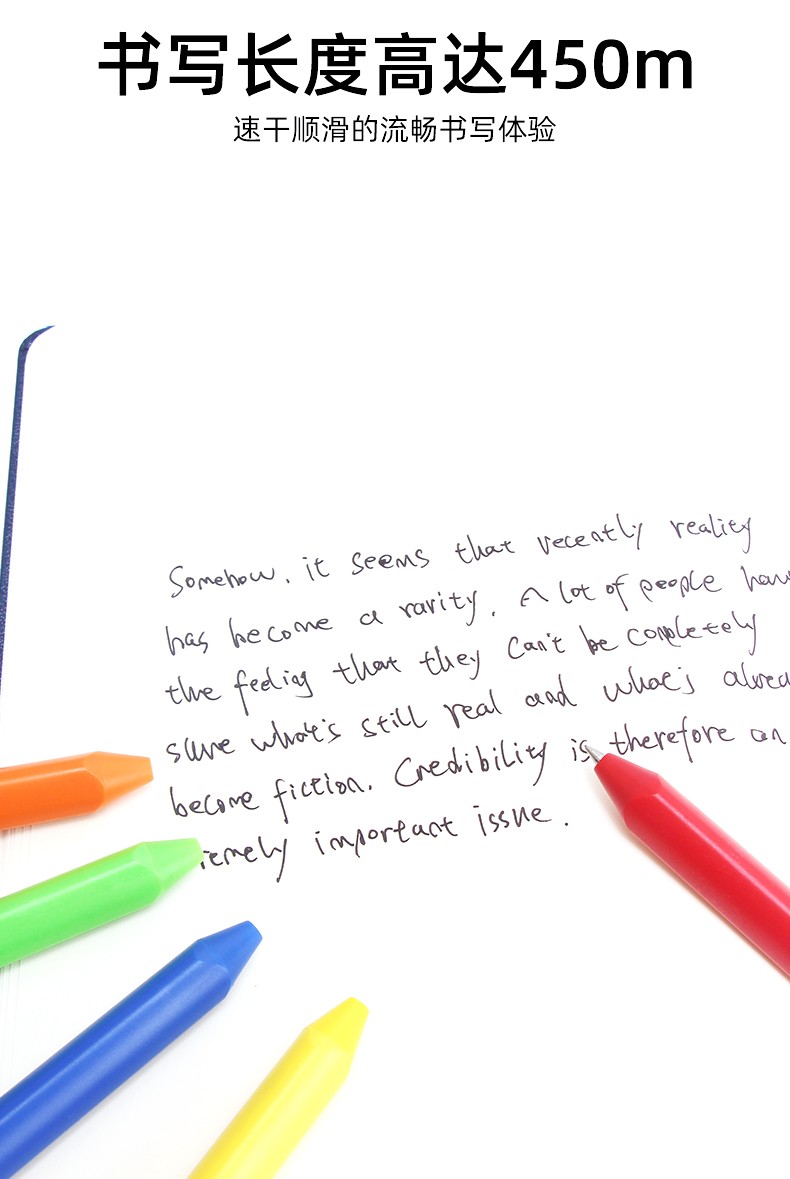 书写长度高达450m
速干顺滑的流畅书写体验
Somehow, it seems that recently reality
has become a rarity. A lot of people have
the feeling that they can't be completely
sure what's still real and what's alrea
become fiction. Credibility is therefore an
remely important issue.